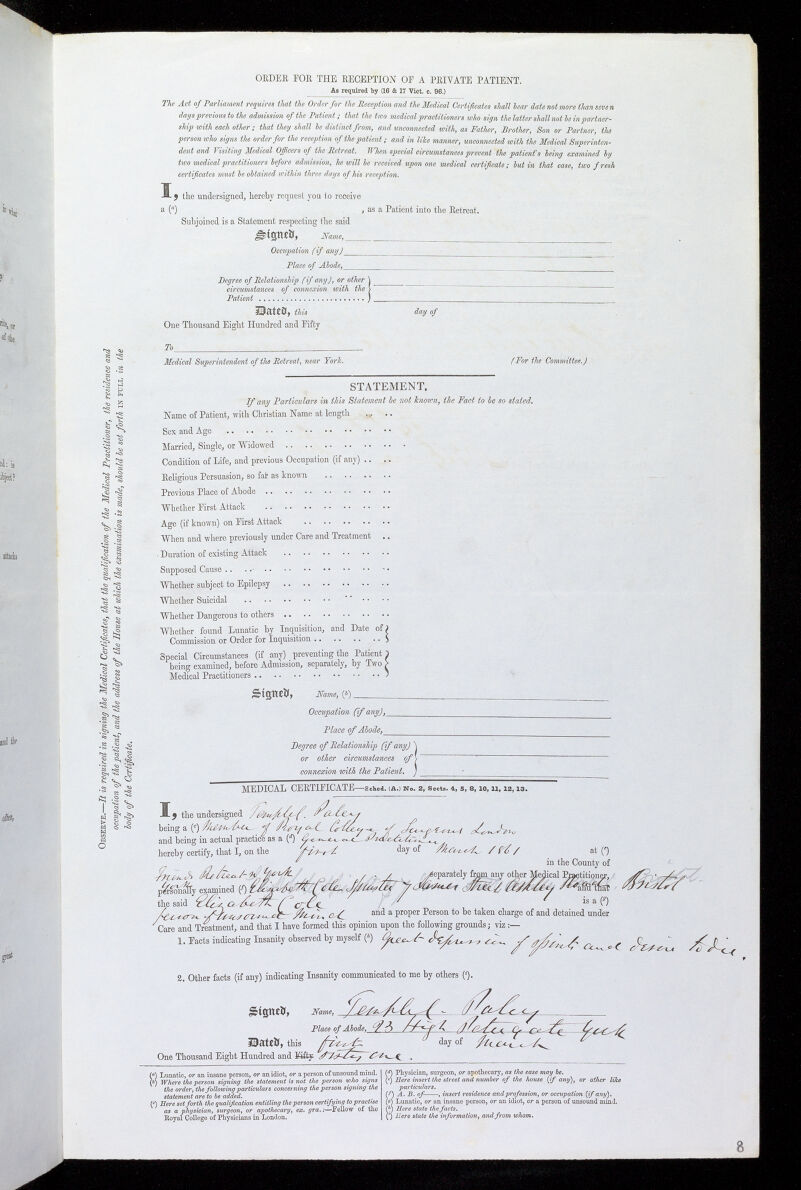 ORDER FOR THE RECEPTION OF A PRIVATE PATIENT.
As required by (16 & 17 Vict. c. 96.)
The Act of Parliament requires that the Order for the Reception and the Medical Certificates shall bear date not more than seven
days previous to the admission of the Patient; that the two medical practitioners who sign the latter shall not be in partner-
ship with each other; that they shall be distinct from, and unconnected with, as Father, Brother, Son or Partner, the
person who signs the order for the reception of the patient; and in like manner, unconnected with the Medical Superinten-
dent and Visiting Medical Officers of the Retreat. When special circumstances prevent the patient's being examined by
two medical practitioners before admission, he will be received upon one medical certificate; but in that case, two fresh
certificates must be obtained within three days of his reception.
I, the undersigned, hereby request you to receive
a (a) , as a Patient into the Retreat.
Subjoined is a Statement respecting the said
Signed, Name,
Occupation (if any)
Place of Abode,
Degree of Relationship (if any), or other
circumstances of connexion with the
Patient
Dated, this day of
One Thousand Eight Hundred and Fifty
To
Medical Superintendent of the Retreat, near York. (For the Committee.)
STATEMENT.
If any Particulars in this Statement be not known, the Fact to be so stated.
Name of Patient, with Christian Name at length
Sex and Age
Married, Single, or Widowed
Condition of Life, and previous Occupation (if any)
Religious Persuasion, so far as known
Previous Place of Abode
Whether First Attack
Age (if known) on First Attack
When and where previously under Care and Treatment
Duration of existing Attack
Supposed Cause
Whether subject to Epilepsy
Whether Suicidal
Whether Dangerous to others
Whether found Lunatic by Inquisition, and Date of
Commission or Order for Inquisition
Special Circumstances (if any) preventing the Patient
being examined, before Admission, separately, by Two
Medical Practitioners
Signed, Name, (b)
Occupation (if any),
Place of Abode,
Degree of Relationship (if any)
or other circumstances of
connexion with the Patient.
OBSERVE.—It is required in signing the Medical Certificates, that the qualification of the Medical Practitioner, the residence and
occupation of the patient, and the address of the House at which the examination is made, should be set forth IN FULL in the
body of the Certificate.
MEDICAL CERTIFICATE—Sched. (A.) No. 2, Sects. 4, 5, 8, 10, 11, 12, 13.
I, the undersigned Temple C. Paley
being a (c) Member of Royal College of Surgeons London
and being in actual practice as a (d) General Practitioner
hereby certify, that I, on the first day of March 1861 at (e)
Friends Retreat nr York in the County of
York separately from any other Medical Practitioner,
personally examined (f) Elizabeth Cole Spinster 7 James Street Ashley Road Bristol and that
the said Elizabeth Cole is a (g)
person of unsound Mind and a proper Person to be taken charge of and detained under
Care and Treatment, and that I have formed this opinion upon the following grounds; viz:—
1. Facts indicating Insanity observed by myself (h) Great depression of spirits and desire to die.
2. Other facts (if any) indicating Insanity communicated to me by others (i).
Signed, Name, Temple C. Paley
Place of Abode, 93 High Petergate York
Dated, this first day of March
One Thousand Eight Hundred and Fifty sixty one.
(a) Lunatic, or an insane person, or an idiot, or a person of unsound mind.
(b) Where the person signing the statement is not the person who signs
the order, the following particulars concerning the person signing the
statement are to be added.
(c) Here set forth the qualification entitling the person certifying to practise
as a physician, surgeon, or apothecary, ex. gra.:—Fellow of the
Royal College of Physicians in London.
(d) Physician, surgeon, or apothecary, as the case may be.
(e) Here insert the street and number of the house (if any), or other like
particulars.
(f) A. B. of——, insert residence and profession, or occupation (if any).
(g) Lunatic, or an insane person, or an idiot, or a person of unsound mind.
(h) Here state the facts.
(i) Here state the information, and from whom.
8